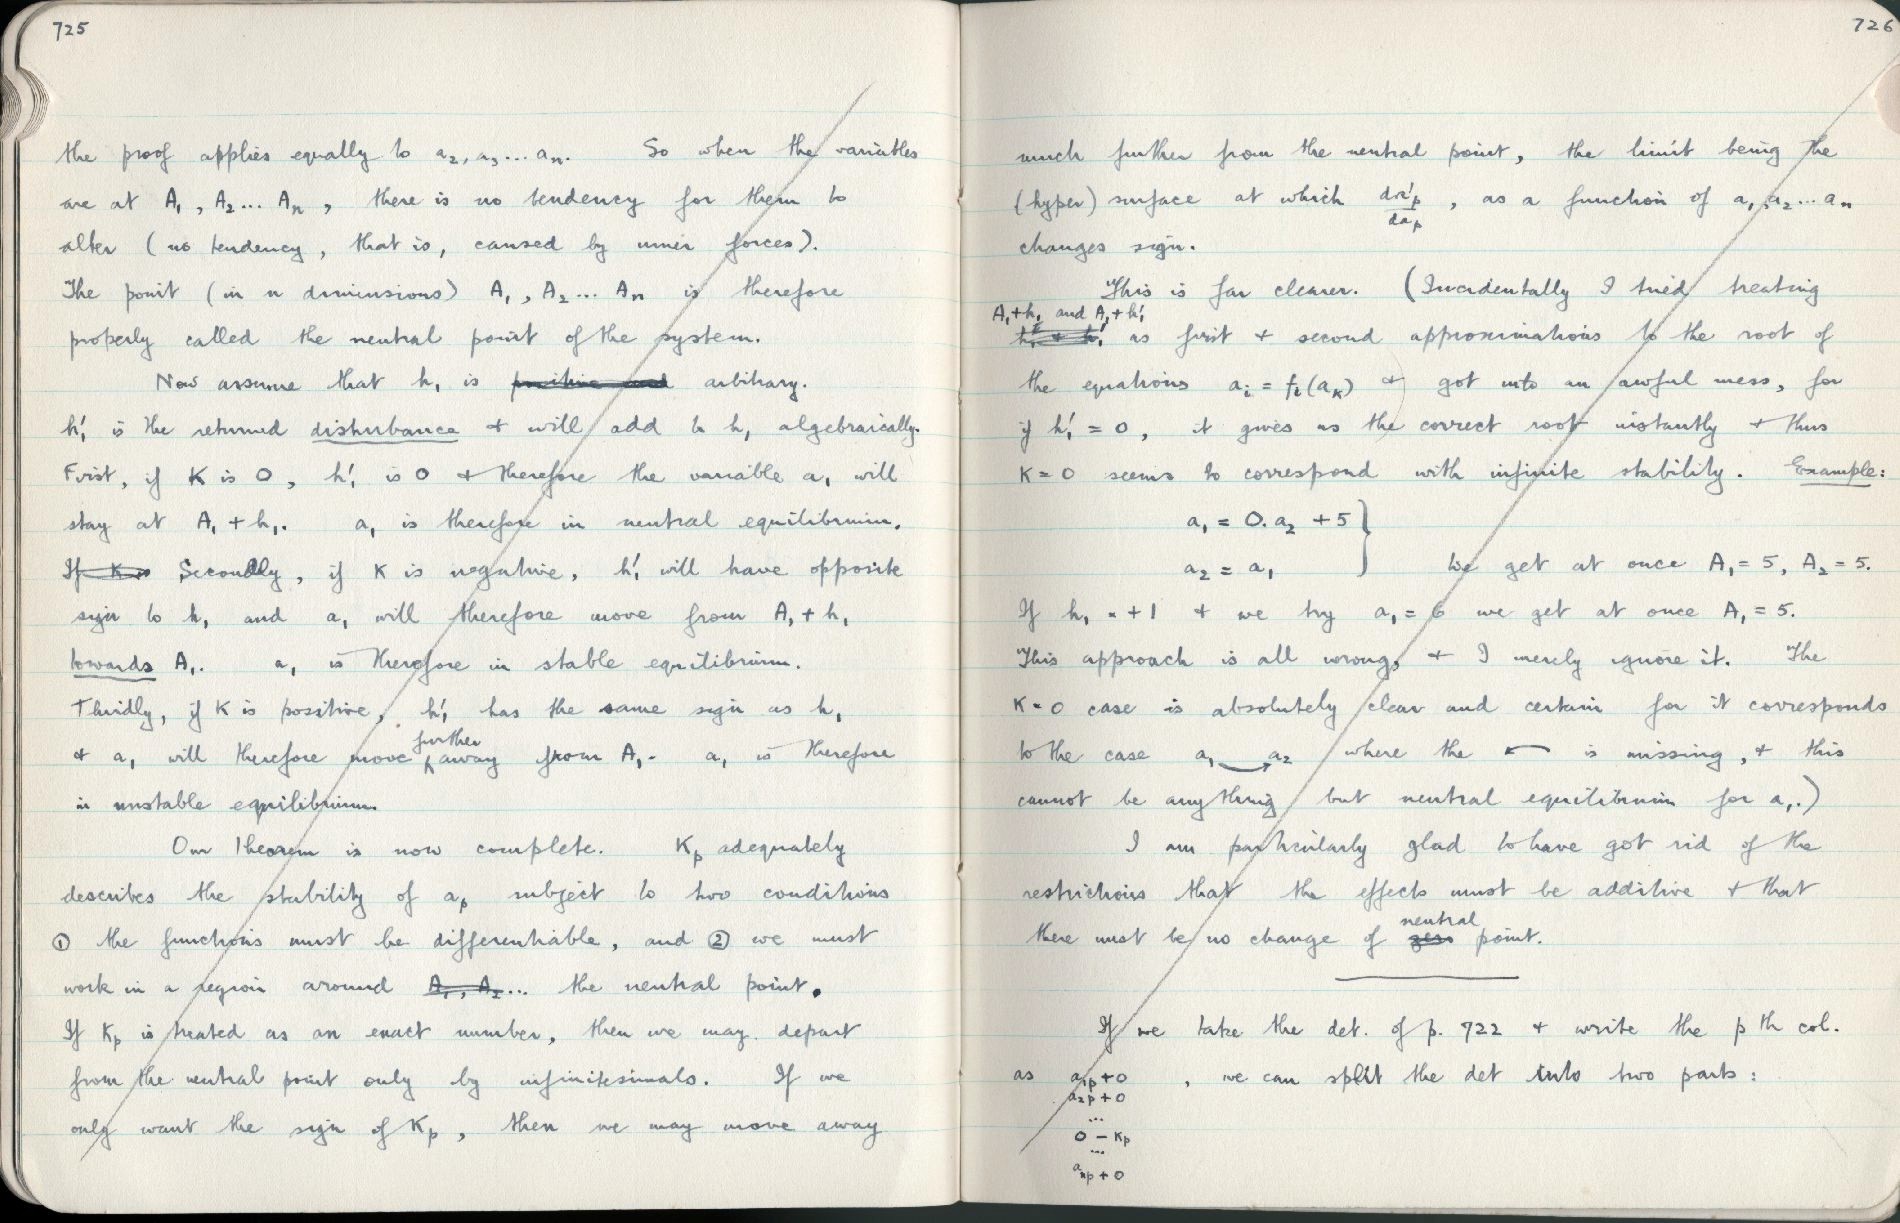 725
the proof applies equally to a₂, a₃ ... aₙ. So when the variables
are at A₁, A₂ ... Aₙ, there is no tendency for them to
alter (no tendency, that is, caused by inner forces).
The point (in n dimensions) A₁, A₂ ... Aₙ is therefore
properly called the neutral point of the system.
Now assume that h₁ is positive and arbitrary.
h₁′ is the returned disturbance & will add to h₁ algebraically.
First, if K is 0, h₁′ is 0 & therefore the variable a₁ will
stay at A₁ + h₁. a₁ is therefore in neutral equilibrium.
If K is Secondly, if K is negative, h₁′ will have opposite
sign to h₁ and a₁ will therefore move from A₁ + h₁
towards A₁. a₁ is therefore in stable equilibrium.
Thirdly, if K is positive, h₁′ has the same sign as h₁
& a₁ will therefore move further away from A₁. a₁ is therefore
in unstable equilibrium.
Our theorem is now complete. Kₚ adequately
describes the stability of aₚ subject to two conditions
① the functions must be differentiable, and ② we must
work in a region around A₁, A₂... the neutral point.
If Kₚ is treated as an exact number, then we may depart
from the neutral point only by infinitesimals. If we
only want the sign of Kₚ, then we may move away
726
much further from the neutral point, the limit being the
(hyper) surface at which da′ₚ/daₚ, as a function of a₁, a₂ ... aₙ
changes sign.
This is far clearer. (Incidentally I tried treating
A₁+h₁ and A₁+h₁′
h₁ & h₁′ as first & second approximations to the root of
the equations aᵢ = fᵢ(aₖ) & got into an awful mess, for
if h₁′ = 0, it gives us the correct root instantly & thus
K = 0 seems to correspond with infinite stability. Example:
a₁ = 0.a₂ + 5 }
a₂ = a₁ We get at once A₁ = 5, A₂ = 5.
If h₁ = +1 & we try a₁ = 6 we get at once A₁ = 5.
This approach is all wrong, & I merely ignore it. The
K = 0 case is absolutely clear and certain for it corresponds
to the case a₁ → a₂ where the ← is missing, & this
cannot be anything but neutral equilibrium for a₁.)
I am particularly glad to have got rid of the
restrictions that the effects must be additive & that
there must be no change of zero neutral point.
If we take the det. of p. 722 & write the p th col.
as a₁ₚ+0, we can split the det into two parts:
a₂ₚ+0
...
0 − Kₚ
...
aₙₚ+0